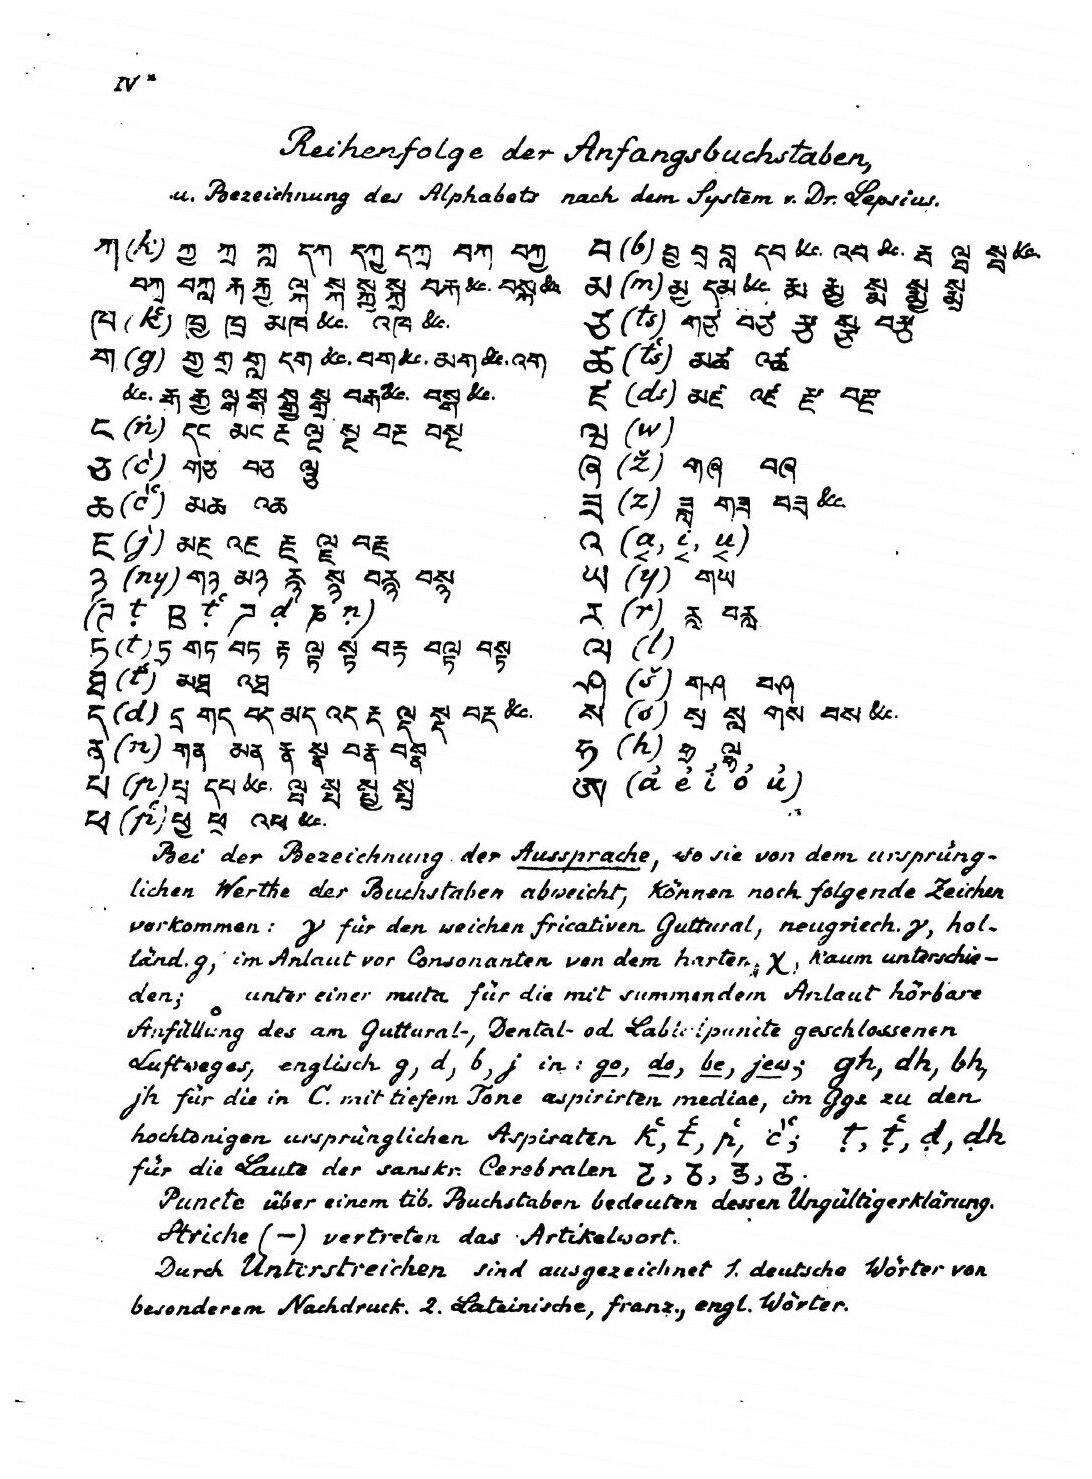 IV *
Reihenfolge der Anfangsbuchstaben,
u. Bezeichnung des Alphabets nach dem System v. Dr. Lepsius.
ཀ (k) ཀྱ ཀྲ ཀླ དཀ དཀྱ དཀྲ བཀ བཀྱ
བཀྲ བཀླ རྐ རྐྱ ལྐ སྐ སྐྱ སྐྲ བརྐ &c. བསྐ &c.
ཁ (k̔) ཁྱ ཁྲ མཁ &c. འཁ &c.
ག (g) གྱ གྲ གླ དག &c. བག &c. མག &c. འག
&c. རྒ རྒྱ ལྒ སྒ སྒྱ སྒྲ བརྒ &c. བསྒ &c.
ང (ṅ) དང མང རྔ ལྔ སྔ བརྔ བསྔ
ཅ (c̀) གཅ བཅ ལྕ
ཆ (c̀̔) མཆ འཆ
ཇ (j̀) མཇ འཇ རྗ ལྗ བརྗ
ཉ (ny) གཉ མཉ རྙ སྙ བརྙ བསྙ
(ཊ ṭ ཋ ṭ̔ ཌ ḍ ཎ ṇ)
ཏ (t) ཏྲ གཏ བཏ རྟ ལྟ སྟ བརྟ བལྟ བསྟ
ཐ (t̔) མཐ འཐ
ད (d) དྲ གད བད མད འད རྡ ལྡ སྡ བརྡ &c.
ན (n) གན མན རྣ སྣ བརྣ བསྣ
པ (p) པྲ དཔ &c. ལྤ སྤ སྤྱ སྤྲ
ཕ (p̔) ཕྱ ཕྲ འཕ &c.
བ (b) བྱ བྲ བླ དབ &c. འབ &c. རྦ ལྦ སྦ &c.
མ (m) མྱ དམ &c. རྨ རྨྱ སྨ སྨྱ སྨྲ
ཙ (ts) གཙ བཙ རྩ སྩ བརྩ
ཚ (t̔s) མཚ འཚ
ཛ (ds) མཛ འཛ རྫ བརྫ
ཝ (w)
ཞ (ž) གཞ བཞ
ཟ (z) ཟླ གཟ བཟ &c.
འ (a̰, ḭ, ṵ)
ཡ (y) གཡ
ར (r) རླ བརླ
ལ (l)
ཤ (š) གཤ བཤ
ས (s) སྲ སླ གས བས &c.
ཧ (h) ཧྲ ལྷ
ཨ (a̓ e̓ i̓ o̓ u̓)
Bei der Bezeichnung der Aussprache, wo sie von dem ursprüng-
lichen Werthe der Buchstaben abweicht, können noch folgende Zeichen
vorkommen: γ für den weichen fricativen Guttural, neugriech. γ, hol-
länd. g, im Anlaut vor Consonanten von dem harten, χ, kaum unterschie-
den; ̥ unter einer muta für die mit summendem Anlaut hörbare
Anfüllung des am Guttural-, Dental- od. Labialpuncte geschlossenen
Luftweges, englisch g, d, b, j in: go, do, be, jew; gh, dh, bh,
jh für die in C. mit tiefem Tone aspirirten mediae, im Ggs zu den
hochtonigen ursprünglichen Aspiraten k̔, t̔, p̔, c̀̔; ṭ, ṭ̔, ḍ, ḍh
für die Laute der sanskr. Cerebralen ट, ठ, ड, ढ.
Puncte über einem tib. Buchstaben bedeuten dessen Ungültigerklärung.
Striche (—) vertreten das Artikelwort.
Durch Unterstreichen sind ausgezeichnet 1. deutsche Wörter von
besonderem Nachdruck. 2. Lateinische, franz., engl. Wörter.